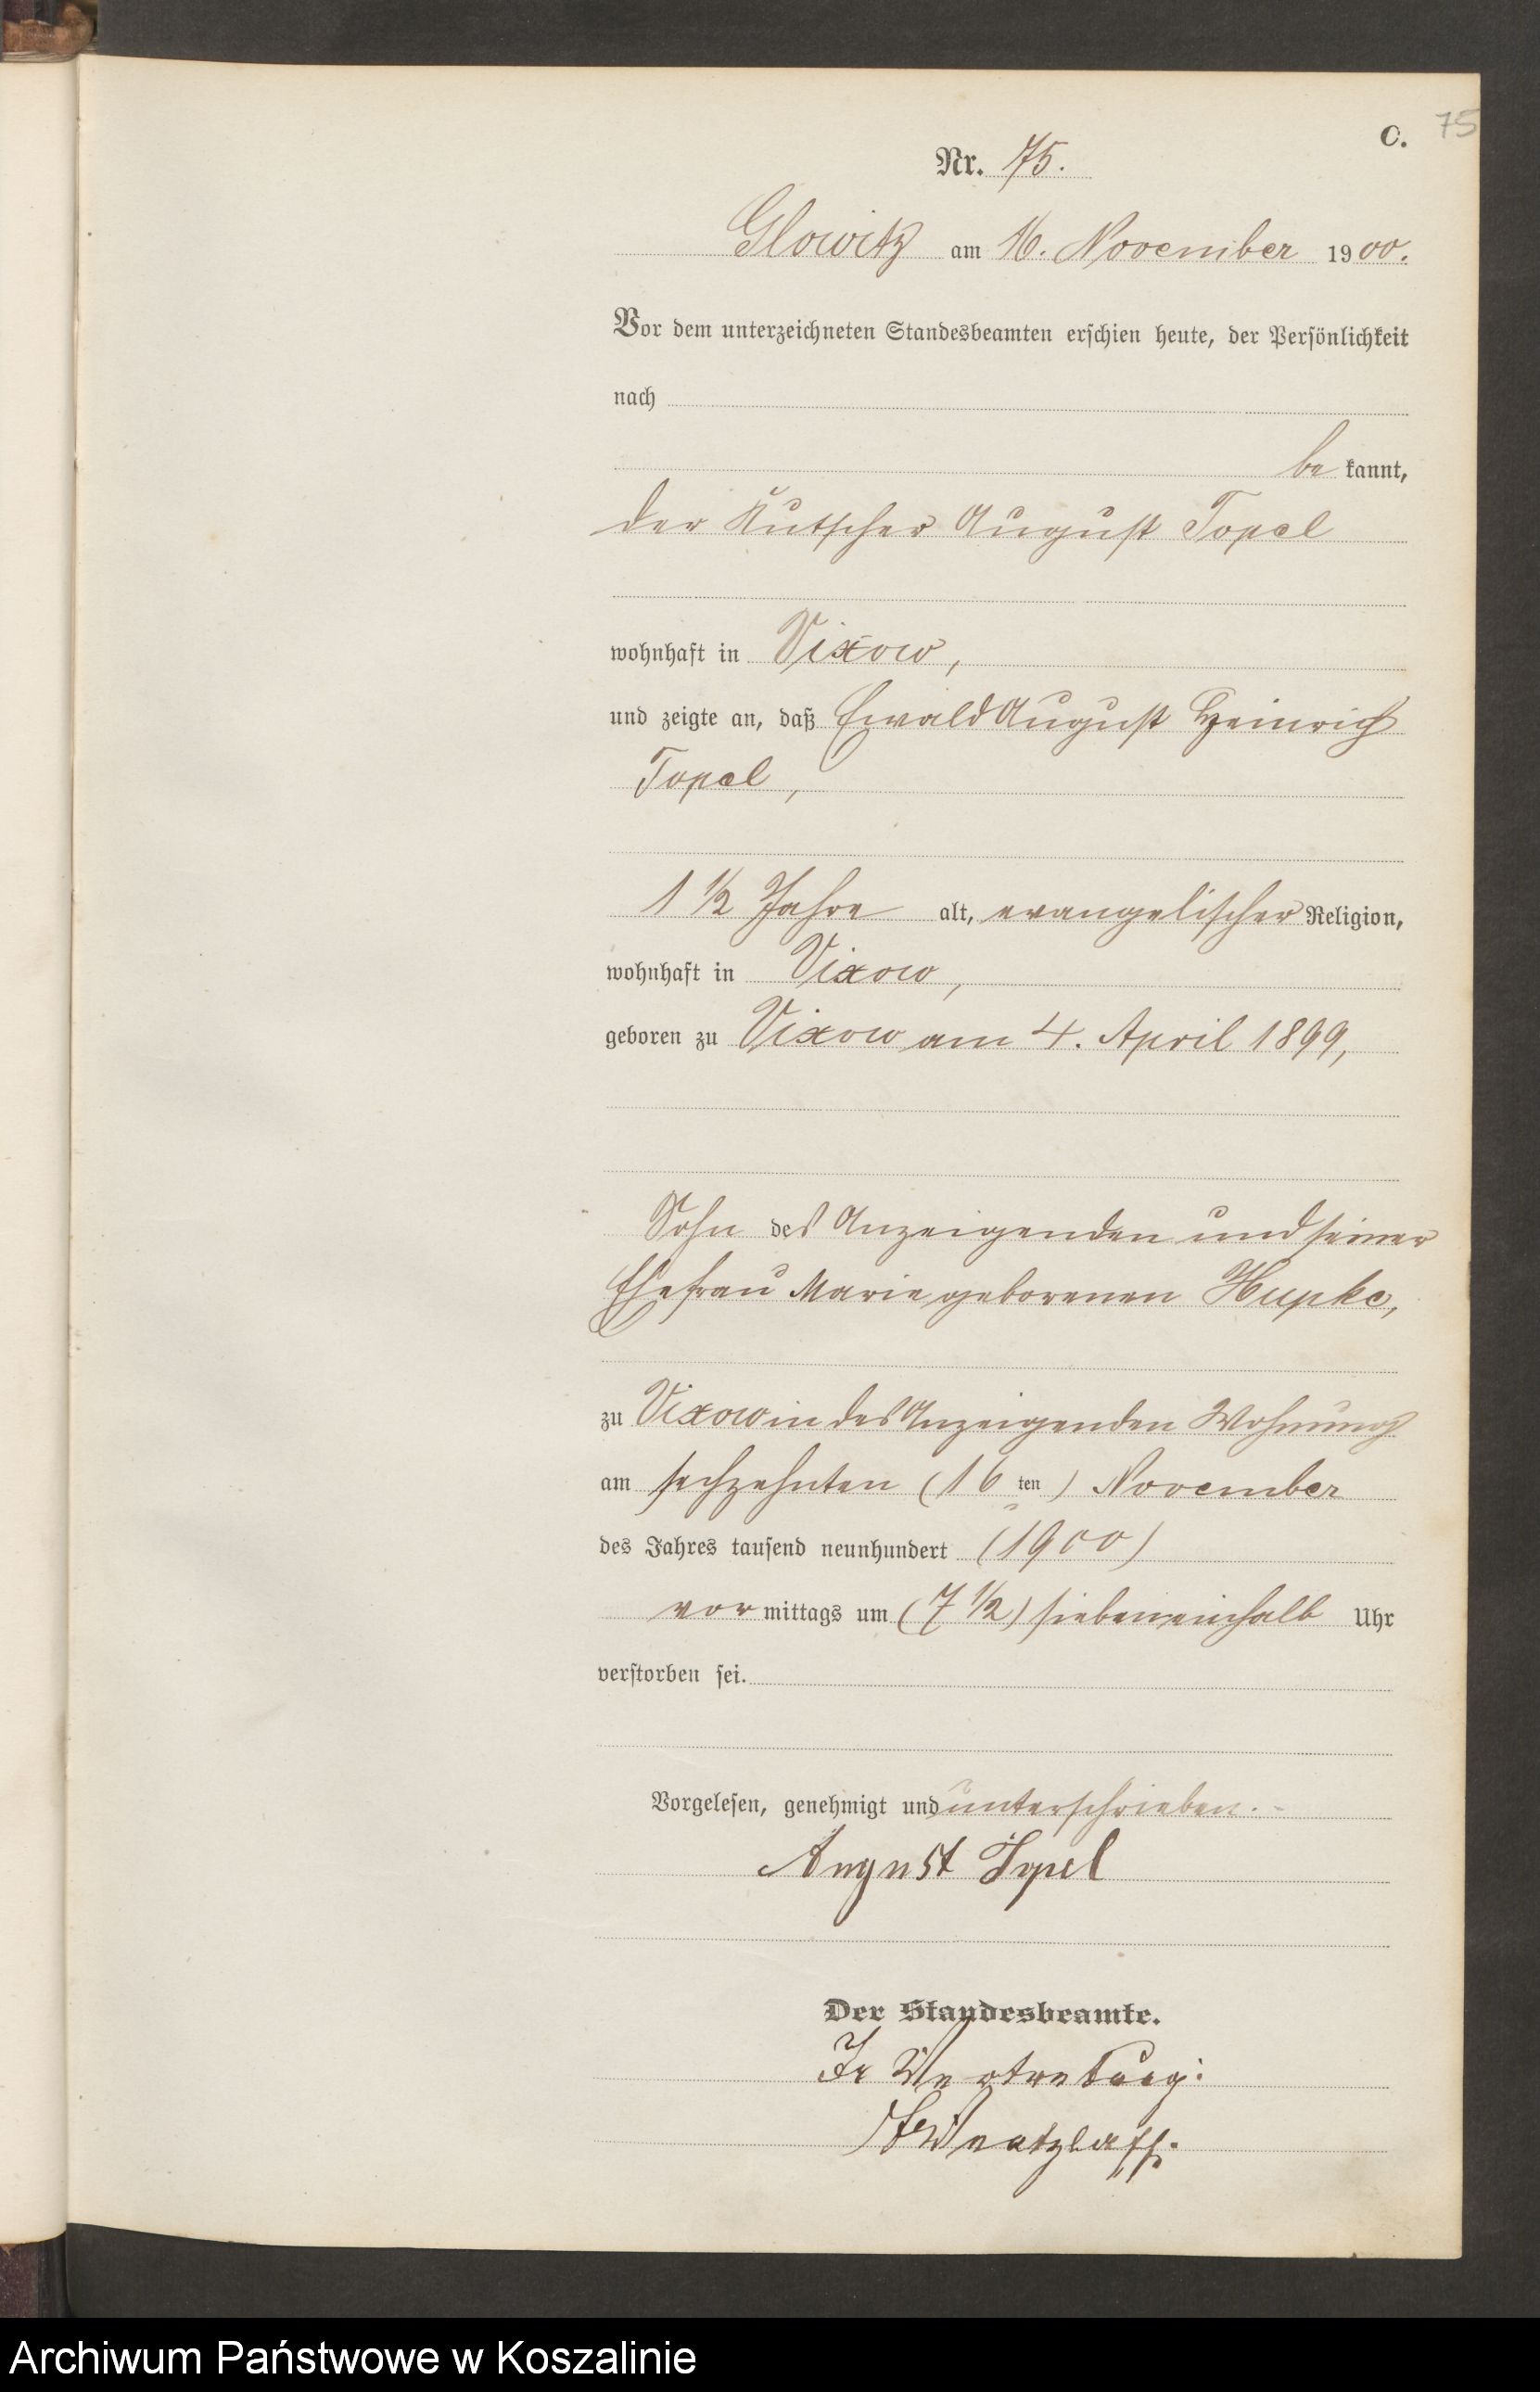 C. 75
Nr. 75.
Glowitz am 16. November 1900.
Vor dem unterzeichneten Standesbeamten erschien heute, der Persönlichkeit
nach
be kannt,
der Kutscher August Topel
wohnhaft in Vixow,
und zeigte an, daß Ewald August Heinrich
Topel,
1 1/2 Jahre alt, evangelischer Religion,
wohnhaft in Vixow,
geboren zu Vixow am 4. April 1899,
Sohn des Anzeigenden und seiner
Ehefrau Marie geborenen Hupke,
zu Vixow in des Anzeigenden Wohnung
am sechzehnten (16 ten) November
des Jahres tausend neunhundert (1900)
vor mittags um (7 1/2) siebeneinhalb Uhr
verstorben sei.
Vorgelesen, genehmigt und unterschrieben.-
August Topel
Der Standesbeamte.
In Vertretung:
Archiwum Państwowe w Koszalinie